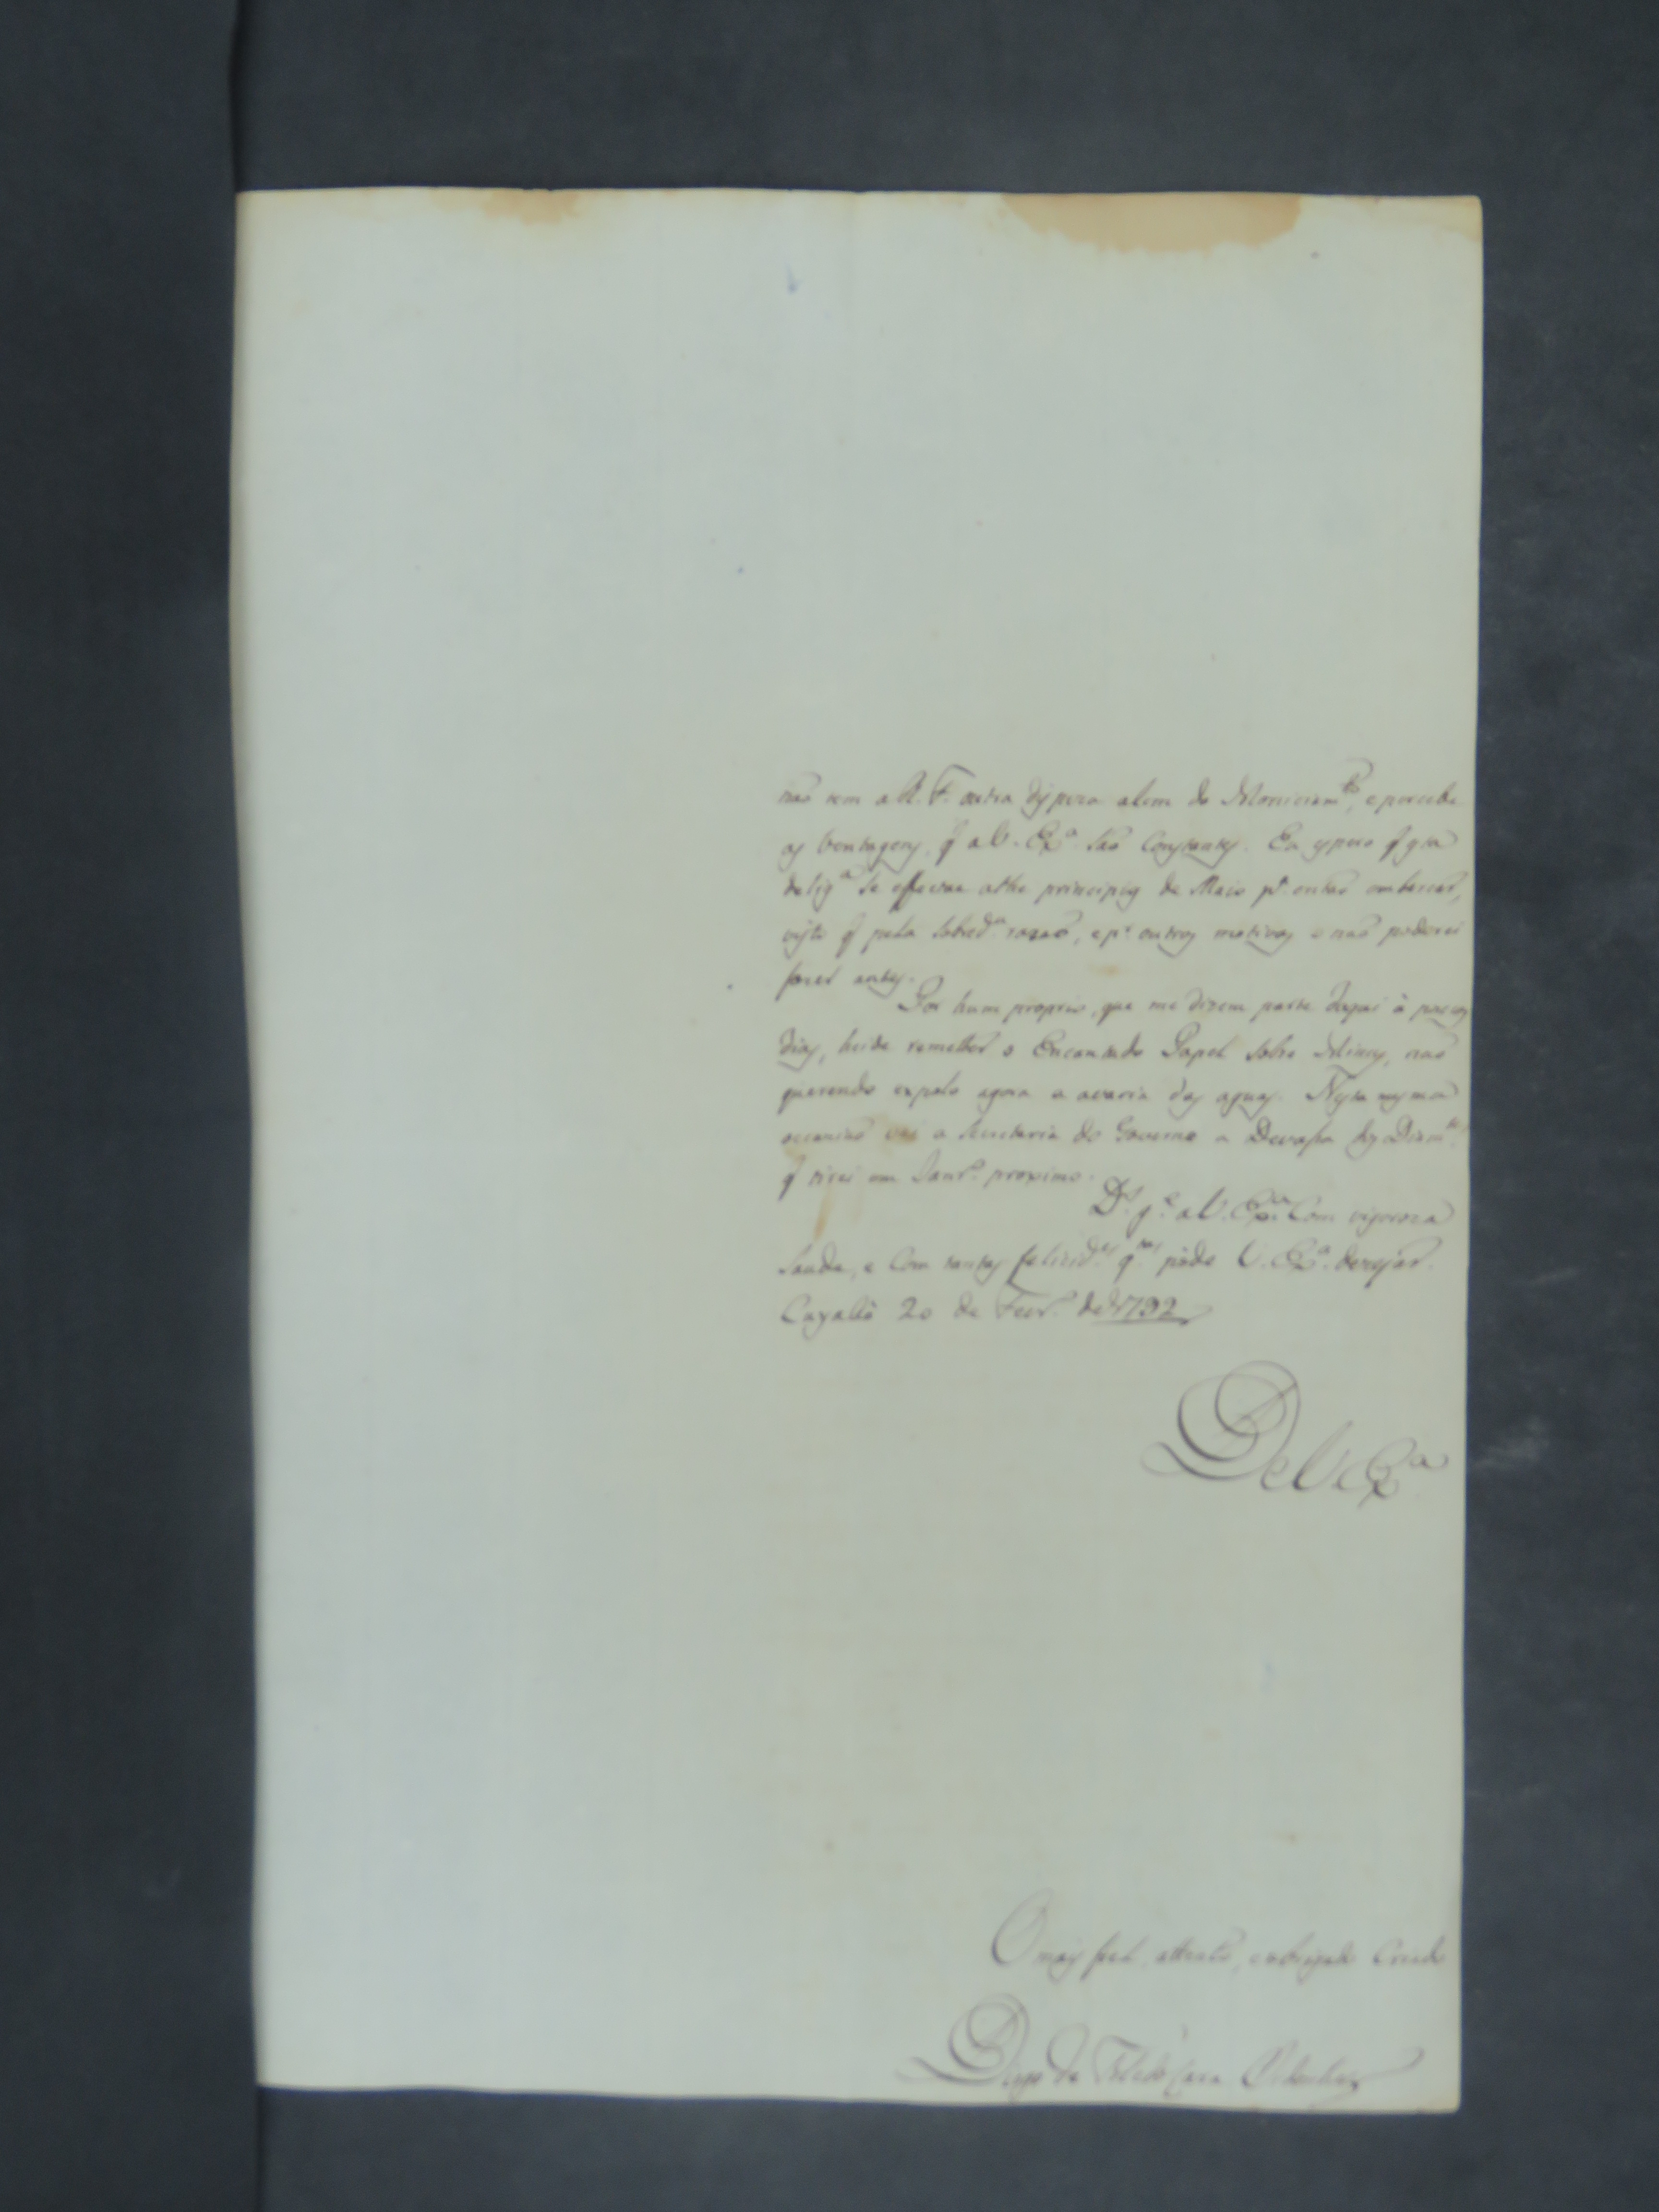 não tem a R. F. outra dispeza alem do Moniciam.to, e percebe
as ventagens q a V. Ex.a são Constantes. Eu espero q esta
delig.a se effectue athe principios de Maio p.a então embarcar,
visto q pela sobred.a razão, e p.r outros motivos o não poderei
fazer antes.
Por hum proprio, que me dizem parte daqui à poucos
dias, heide remetter o Encantado Papel sobre Minas, não
querendo expolo agora a avaria das aguas. Nesta mesma
occazião vai a Secretaria do Governo a Devassa dos Diam.tes
q tirei em Janr.o proximo.
D.s g.e a V. Ex.a Com vigoroza
Saude, e Com tantas felicid.es q.tas póde V. Ex.a dezejar.
Cuyabá 20 de Fevr.o de 1792
De V. Ex.a
O mais fiel, attento, e obrigado Criado
Diogo de Toledo Lara Ordonhez